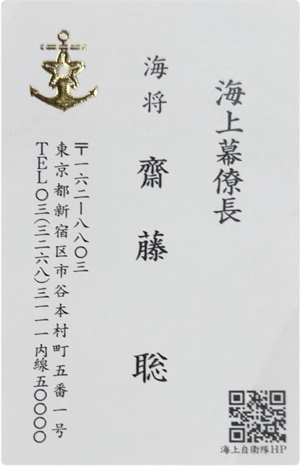 海上幕僚長
海将 齋藤 聡
〒一六二ー八八〇三
東京都新宿区市谷本村町五番一号
TEL〇三(三二六八)三一一一内線五〇〇〇〇
海上自衛隊HP